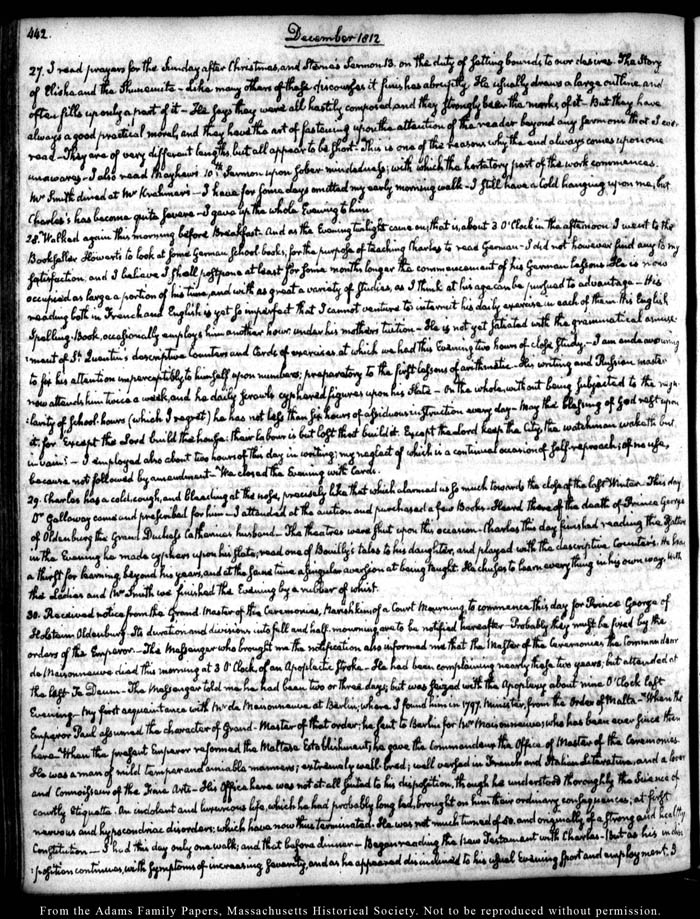 442.
December 1812
27. I read prayers for the Sunday after Christmas, and Sterne's Sermon 13. on the duty of setting bounds to our desires. The Story
of Elisha and the Shunamite – Like many others of these discourses it finishes abruptly. He usually draws a large outline and
often fills up only a part of it – He says they were all hastily composed, and they strongly bear the marks of it – But they have
always a good practical moral, and they have the art of fastening upon the attention of the reader beyond any sermons that I ever
read – They are of very different lengths, but all appear to be short – This is one of the reasons why the end always comes upon one
unawares – I also read Mayhew's 10th Sermon upon sober mindedness; with which the hortatory part of the work commences.
Mr Smith dined at Mr Krehmer's – I have for some days omitted my early morning walk – I still have a Cold hanging upon me, but
Charles's has become quite severe – I gave up the whole Evening to him.
28. Walked again this morning before Breakfast. And as the Evening twilight came on, that is, about 3 O'Clock in the afternoon I went to the
Bookseller Howart's to look at some German school-books, for the purpose of teaching Charles to read German – I did not however find any to my
satisfaction, and I believe I shall postpone at least for some months longer the commencement of his German lessons. He is now
occupied as large a portion of his time, and with as great a variety of Studies, as I think at his age can be pursued to advantage – His
reading both in French and English is yet so imperfect that I cannot venture to intermit his daily exercise in each of them. His English
Spelling-Book, occasionally employs him another hour under his mother's tuition – He is not yet satiated with the grammatical amuse-
:ment of St. Quentin's descriptive Counters and Cards of exercises at which we had this Evening two hours of close Study – I am endeavouring
to fix his attention imperceptibly to himself upon numbers, preparatory to the first lessons of arithmetic – His writing and Russian master
now attends him twice a week, and he daily scrawls cyphered figures upon his Slate – On the whole, without being subjected to the regu-
:larity of School-hours (which I regret) he has not less than six hours of assiduous instruction every day – May the blessing of God rest upon
it, for "Except the Lord build the house: their labour is but lost that build it. Except the Lord keep the City, the watchman waketh but
in vain" – I employed also about two hours of this day in writing; my neglect of which is a continual occasion of self-reproach; of no use,
because not followed by amendment – We closed the Evening with Cards.
29. Charles has a cold, cough, and bleeding at the nose, precisely like that which alarmed us so much towards the close of the last Winter. This day
Dr Galloway came and prescribed for him – I attended at the auction and purchased a few Books – Heard there of the death of Prince George
of Oldenburg the Grand Duchess Catherine's husband – The theatres were shut upon this occasion – Charles this day finished reading the Psalter
in the Evening he made cyphers upon his slate, read one of Bouilly's tales to his daughter, and played with the descriptive Counters. He has
a thirst for learning beyond his years, and at the same time a singular aversion at being taught. He chuses to learn every thing in his own way. With
the Ladies and Mr Smith we finished the Evening by a rubber of whist.
30. Received notice from the Grand Master of the Ceremonies, Narishkin of a Court Mourning, to commence this day for Prince George of
Holstein Oldenburg. Its duration and divisions into full and half-mourning are to be notified hereafter. Probably they must be fixed by the
orders of the Emperor – The Messenger who brought me the notification also informed me that the Master of the Ceremonies the Commandeur
de Maisonneuve died this morning at 3 O'Clock, of an Apoplectic stroke – He had been complaining nearly these two years, but attended at
the last Te Deum – The Messenger told me he had been two or three days; but was seized with the Apoplexy about nine O'Clock last
Evening – My first acquaintance with Mr de Maisonneuve at Berlin, where I found him in 1797. Minister, from the Order of Malta – When the
Emperor Paul assumed the character of Grand-Master of that order, he sent to Berlin for Mr Maisonneuve, who has been ever since then
here – When the present Emperor reformed the Maltese Establishment, he gave the Commandeur the Office of Master of the Ceremonies
He was a man of mild temper and amiable manners; extremely well bred; well versed in French and Italian literature, and a lover
and Connoisseur of the Fine Arts – His Office here was not at all suited to his disposition, though he understood thoroughly the Science of
courtly etiquette. An indolent and luxurious life, which he had probably long led, brought on him their ordinary consequences; at first
nervous and hypocondriac disorders, which have now thus terminated. He was not much turned of 50. and originally of a strong and healthy
Constitution – I had this day only one walk; and that before dinner – Began reading the New Testament with Charles – But as his indis-
:position continues, with symptoms of increasing severity, and as he appeared disinclined to his usual Evening sport and employment. I
From the Adams Family Papers, Massachusetts Historical Society. Not to be reproduced without permission.